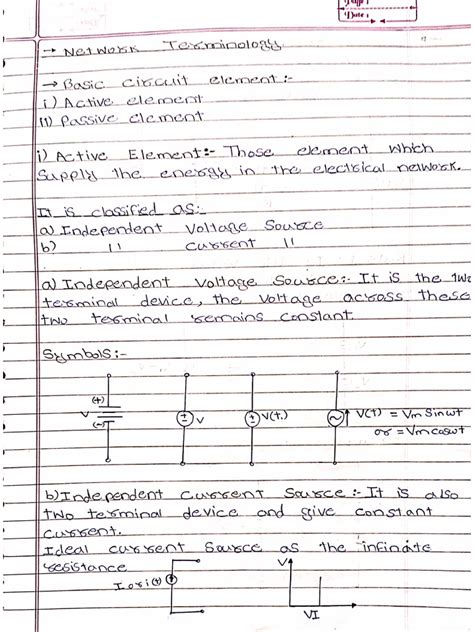 Page :
Date :
→ Network Terminology
→ Basic circuit element :-
i) Active element
ii) Passive element
i) Active Element :- Those element which
supply the energy in the electrical network.
It is classified as :-
a) Independent Voltage Source
b) 11 Current 11
a) Independent Voltage Source :- It is the two
terminal device, the voltage across these
two terminal remains constant.
Symbols :-
(+)
V
(-)
+
-
V
+
-
V(t)
V(t) = Vm Sinωt
or = Vm cosωt
b) Independent Current Source :- It is also
two terminal device and give constant
current.
Ideal current Source as the infinite
resistance
I or i(t)
V
VI